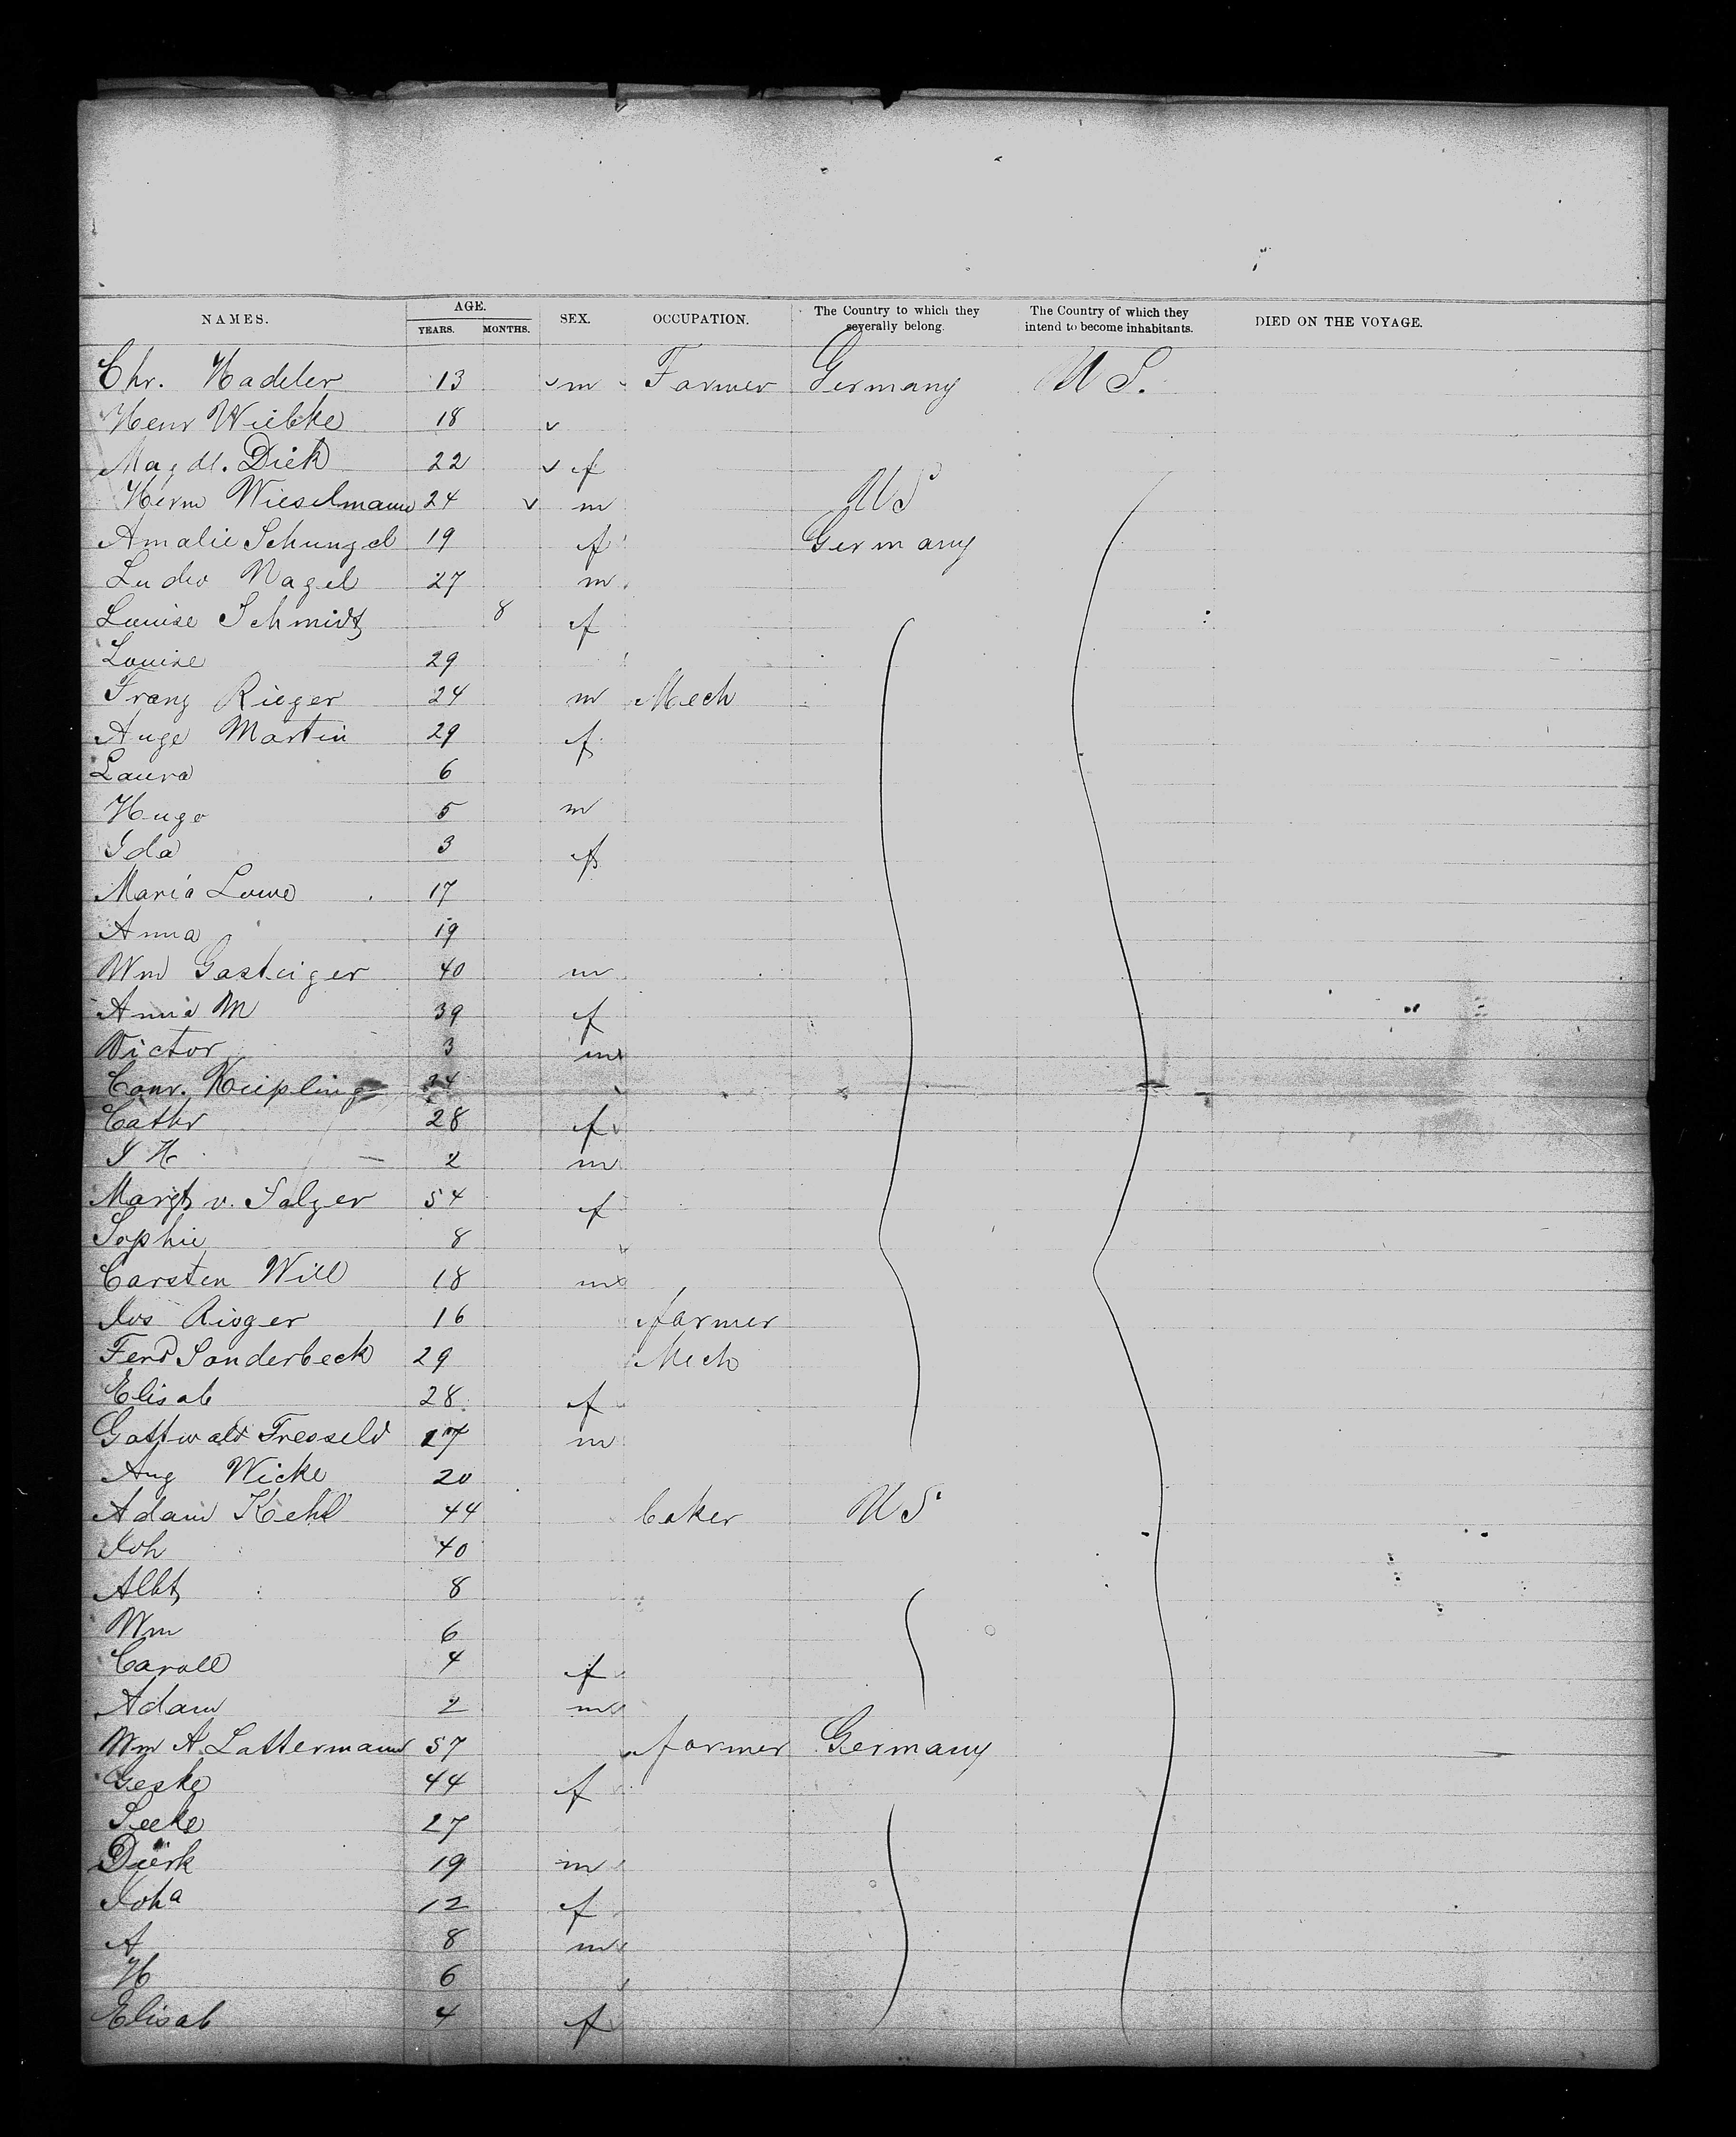 NAMES. AGE. YEARS. MONTHS. SEX. OCCUPATION. The Country to which they severally belong. The Country of which they intend to become inhabitants. DIED ON THE VOYAGE.
Chr. Hadeler 13 m Farmer Germany U S.
Henr Wiebke 18
Magdl. Dick 22 f
Herm Wieselmann 24 m US
Amalie Schungel 19 f Germany
Ludw Nagel 27 m
Louise Schmidt 8 f
Louise 29
Franz Rieger 24 m Mech
Auge Martin 29 f
Laura 6
Hugo 5 m
Ida 3 f
Maria Lowe 17
Anna 19
Wm Gasteiger 40 m
Anna M 39 f
Victor 3 m
Conr. Kuipling 34
Cathr 28 f
J H 2 m
Margt v. Salzer 54 f
Sophie 8
Carsten Will 18 m
Jos Rieger 16 farmer
Ferd Sonderbeck 29 Mech
Elisab 28 f
Gottwald Tresseld 27 m
Aug Wicke 20
Adam Kehl 44 baker US
Joh 40
Albt 8
Wm 6
Caroll 4 f
Adam 2 m
Wm A. Lattermann 57 farmer Germany
Geske 44 f
Seeke 27
Dierk 19 m
Joha 12 f
A 8 m
H 6
Elisab 4 f